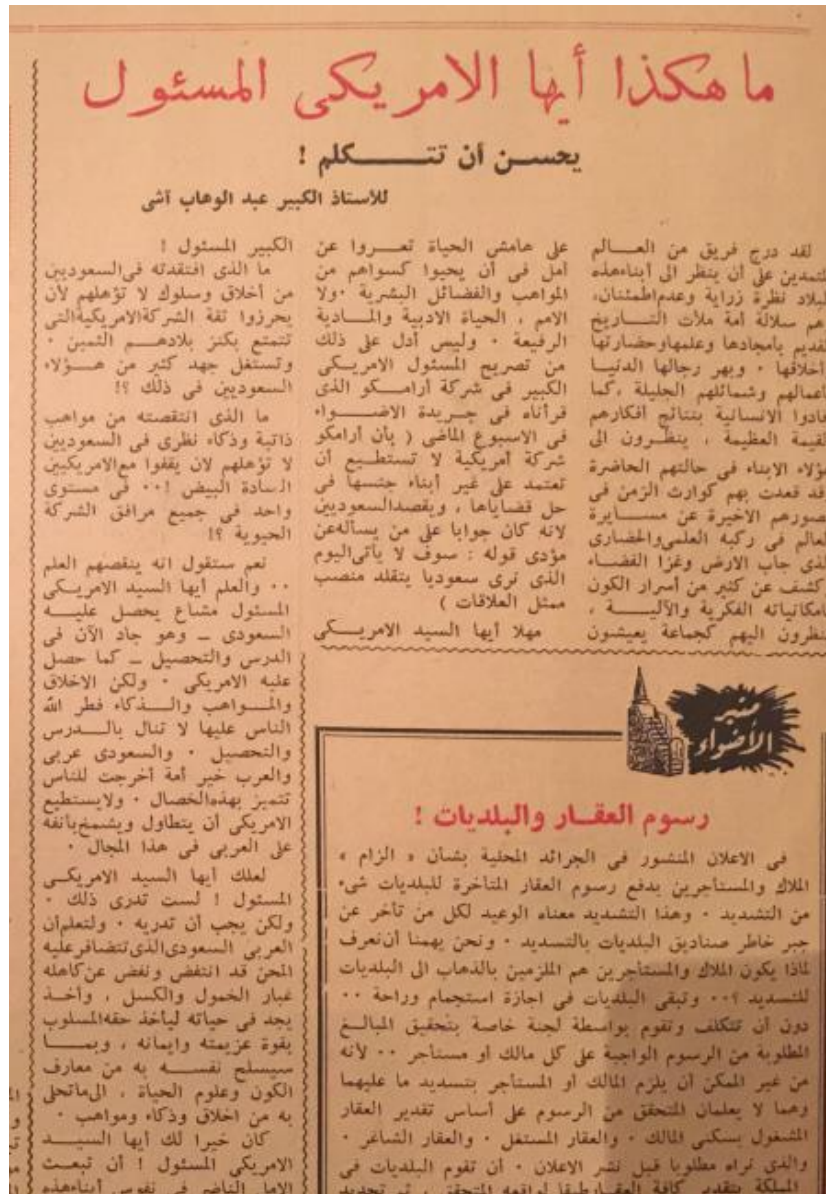 ما هكذا أيها الامريكى المسئول
يحسن أن تتكلم !
للأستاذ الكبير عبد الوهاب آشى
لقد درج فريق من العالم
على أن ينظر الى أبناء هذه
نظرة زراية وعدم اطمئنان،
سلالة أمة ملأت التاريخ
بأمجادها وعلمها وحضارتها
وبهر رجالها الدنيا
وشمائلهم الجليلة ، كما
الانسانية بنتائج أفكارهم
العظيمة ، ينظرون الى
الابناء فى حالتهم الحاضرة
قعدت بهم كوارث الزمن فى
الاخيرة عن مسايرة
فى ركبه العلمى والحضارى
جاب الارض وغزا الفضاء
عن كثير من أسرار الكون
الفكرية والآلية ،
اليهم كجماعة يعيشون
على هامش الحياة تعروا عن
أمل فى أن يحيوا كسواهم من
المواهب والفضائل البشرية ٠ ولا
الامم ، الحياة الادبية والمادية
الرفيعة ٠ وليس أدل على ذلك
من تصريح المسئول الامريكى
الكبير فى شركة أرامكو الذى
قرأناه فى جريدة الاضواء
فى الاسبوع الماضى ( بأن أرامكو
شركة أمريكية لا تستطيع أن
تعتمد على غير أبناء جنسها فى
حل قضاياها ، ويقصد السعوديين
لانه كان جوابا على من يسأله عن
مؤدى قوله : سوف لا يأتى اليوم
الذى نرى سعوديا يتقلد منصب
ممثل العلاقات )
مهلا أيها السيد الامريكى
الكبير المسئول !
ما الذى افتقدته فى السعوديين
من أخلاق وسلوك لا تؤهلهم لأن
يحرزوا ثقة الشركة الامريكية التى
تتمتع بكنز بلادهم الثمين ٠
وتستغل جهد كثير من هؤلاء
السعوديين فى ذلك ؟!
ما الذى انتقصته من مواهب
ذاتية وذكاء نظرى فى السعوديين
لا تؤهلهم لان يقفوا مع الامريكيين
السادة البيض !٠٠ فى مستوى
واحد فى جميع مرافق الشركة
الحيوية ؟!
نعم ستقول انه ينقصهم العلم
٠٠ والعلم أيها السيد الامريكى
المسئول مشاع يحصل عليه
السعودى ــ وهو جاد الآن فى
الدرس والتحصيل ــ كما حصل
عليه الامريكى ٠ ولكن الاخلاق
والمواهب والذكاء فطر الله
الناس عليها لا تنال بالدرس
والتحصيل ٠ والسعودى عربى
والعرب خير أمة أخرجت للناس
تتميز بهذه الخصال ٠ ولا يستطيع
الامريكى أن يتطاول ويشمخ بأنفه
على العربى فى هذا المجال ٠
لعلك أيها السيد الامريكى
المسئول ! لست تدرى ذلك ٠
ولكن يجب أن تدريه ٠ ولتعلم أن
العربى السعودى الذى تتضافر عليه
المحن قد انتفض ونفض عن كاهله
غبار الخمول والكسل ، وأخذ
يجد فى حياته ليأخذ حقه المسلوب
بقوة عزيمته وايمانه ، وبما
سيسلح نفسه به من معارف
الكون وعلوم الحياة ، الى ما تحلى
به من اخلاق وذكاء ومواهب ٠
كان خيرا لك أيها السيد
الامريكى المسئول ! أن تبعث
الامل الناضر فى نفوس أبناء هذه
منبر
الأضواء
رسوم العقار والبلديات !
فى الاعلان المنشور فى الجرائد المحلية بشأن « الزام »
الملاك والمستأجرين بدفع رسوم العقار المتأخرة للبلديات شىء
من التشديد ٠ وهذا التشديد معناه الوعيد لكل من تأخر عن
جبر خاطر صناديق البلديات بالتسديد ٠ ونحن يهمنا أن نعرف
لماذا يكون الملاك والمستأجرين هم الملزمين بالذهاب الى البلديات
للتسديد ؟٠٠ وتبقى البلديات فى اجازة استجمام وراحة ٠٠
دون أن تتكلف وتقوم بواسطة لجنة خاصة بتحقيق المبالغ
المطلوبة من الرسوم الواجبة على كل مالك أو مستأجر ٠٠ لأنه
من غير الممكن أن يلزم المالك أو المستأجر بتسديد ما عليهما
وهما لا يعلمان المتحقق من الرسوم على أساس تقدير العقار
المشغول بسكنى المالك ٠ والعقار المستغل ٠ والعقار الشاغر ٠
والذى نراه مطلوبا قبل نشر الاعلان ٠ أن تقوم البلديات فى
المملكة بتقدير كافة العقار طبقا لواقعه المتحقق ، ثم تحديد